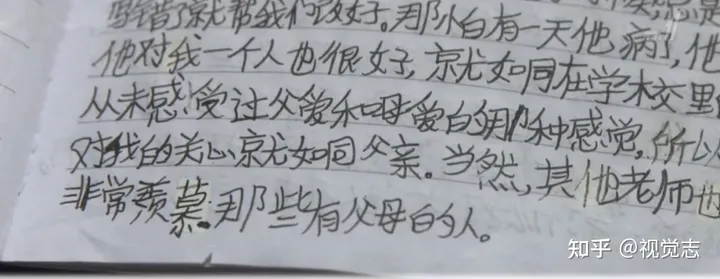 写错了就帮我们改好。那怕有一天他病了,他
他对我一个人也很好,就如同在学校里
从未感受过父爱和母爱的那种感觉,所以
对我的关心就如同父亲。当然,其他老师也
非常羡慕那些有父母的人。
知乎 @视觉志